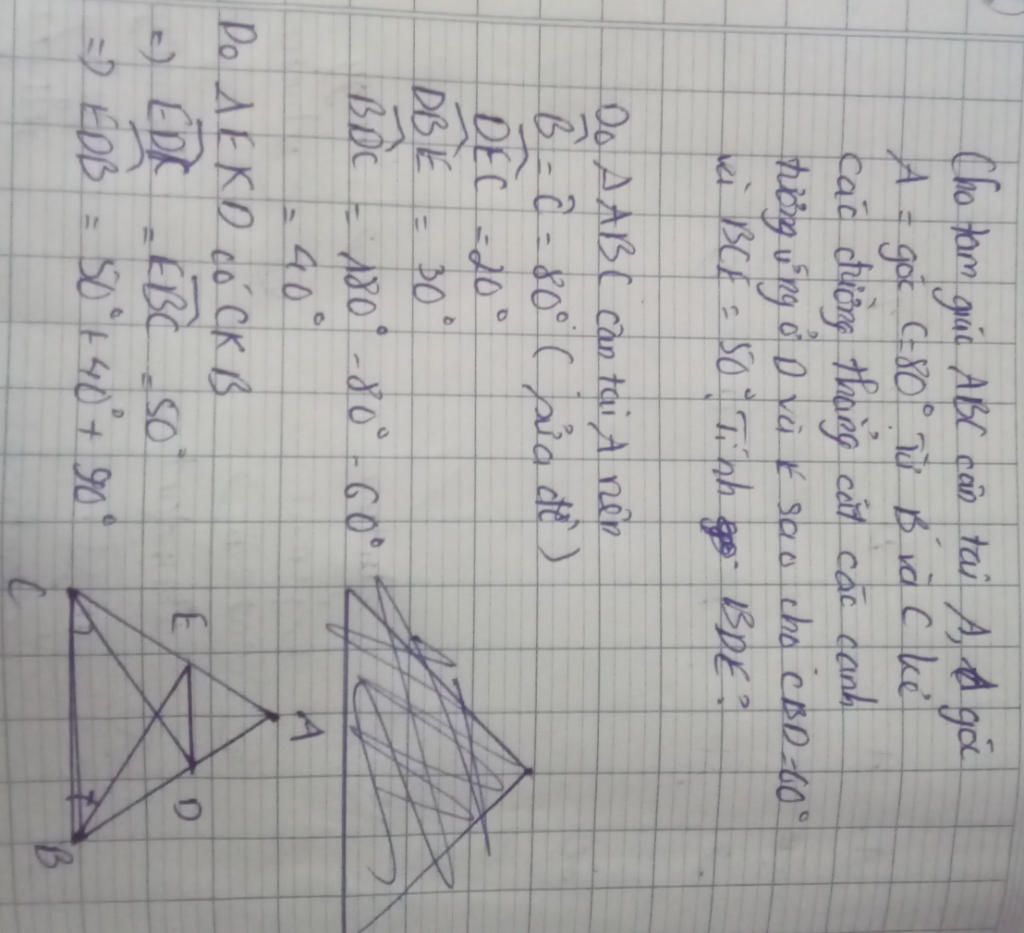 Cho tam giác ABC cân tại A, góc
A = góc C = 80° Từ B và C kẻ
các đường thẳng cắt các cạnh
tương ứng ở D và K sao cho CBD = 60°
và BCE = 50°. Tính BDE?
Do ΔABC cân tại A nên
B = C = 80° (sửa đề)
DEC = 20°
DBE = 30°
BDC = 180° - 80° - 60°
= 40°
Do ΔEKD có CKB
=> EDK = EBC = 50°
=> EDB = 50° + 40° + 90°
A
E
D
C
B